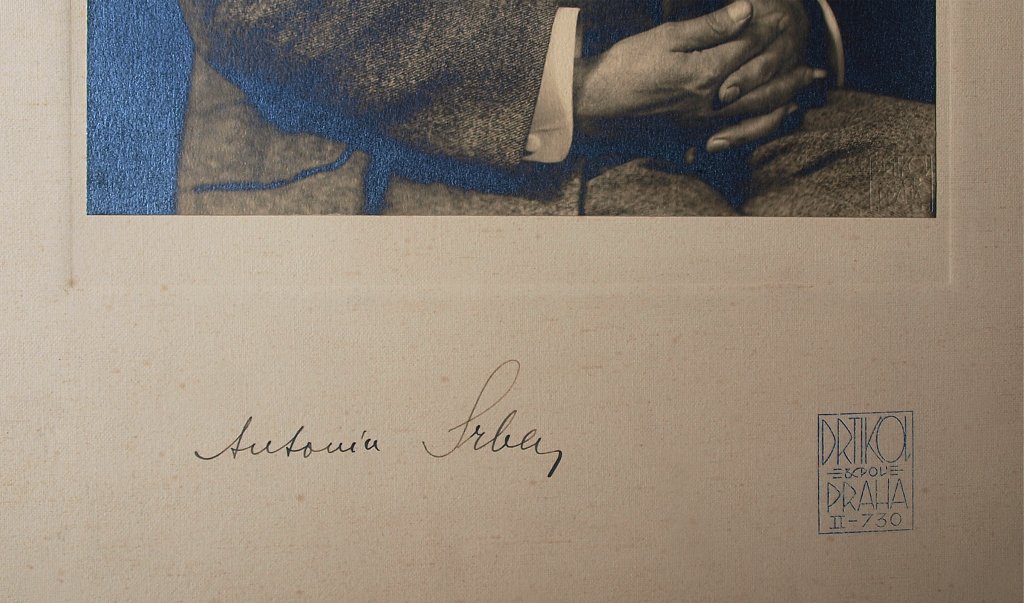 Antonín Srba,
DRTIKOL
& SPOL
PRAHA
II-730